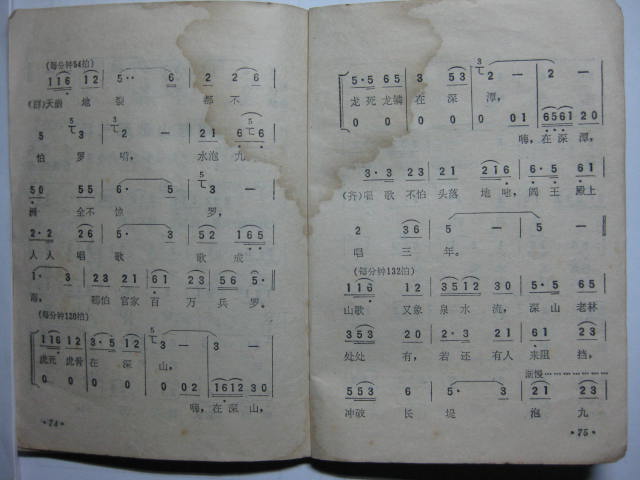 (每分钟54拍)
1 1 6 1 2 5 · · 6 2 2 6
(群)天崩 地 裂 都 不
5 5 3 2 — 2 1 6 6
怕 罗 唱, 水泡 九
5 0 5 5 6 · 5 5 —
洲 全不 惊 罗,
2 · 2 2 6 5 3 5 2 1 6 5
人 人 唱 歌 歌 成
1 · 3 2 3 2 1 6 1 2 3 2 3 5 ·
海, 哪怕 官家 百 万 兵 罗。
(每分钟120拍)
1 1 6 1 2 3 · 5 1 2 5 3 — 3 —
此死 此 在 深 山,
0 0 0 0 0 0 0 0 1 6 1 2 3 0
嗨, 在 深 山,
· 74 ·
5 · 5 6 5 3 5 3 3 2 — 2 —
龙死 龙鳞 在 深 潭,
0 0 0 0 0 0 6 5 6 1 2 0
嗨, 在 深 潭,
3 · 3 2 3 2 1 2 1 6 3 · 5 6 1
(齐)唱 歌 不怕 头落 地 吔, 阎 王 殿上
2 3 6 5 — 5 —
唱 三 年。
(每分钟132拍)
1 1 6 2 3 3 5 1 2 3 0 5 · 5 6 5
山歌 又象 泉 水 流, 深 山 老林
3 5 3 2 3 2 · 3 2 1 6 1 2 3
处处 有, 若 还 有 人 来阻 挡,
渐慢
5 5 3 2 3 5 · 3 5 3
冲破 长 堤 泡 九
· 75 ·